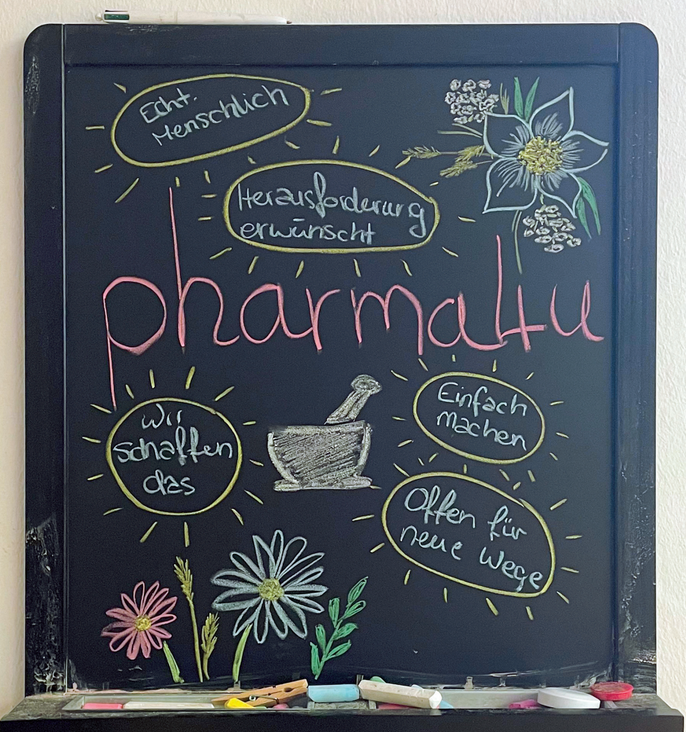 Echt.
Menschlich
Herausforderung
erwünscht
pharma4u
wir
schaffen
das
Einfach
machen
Offen für
neue Wege